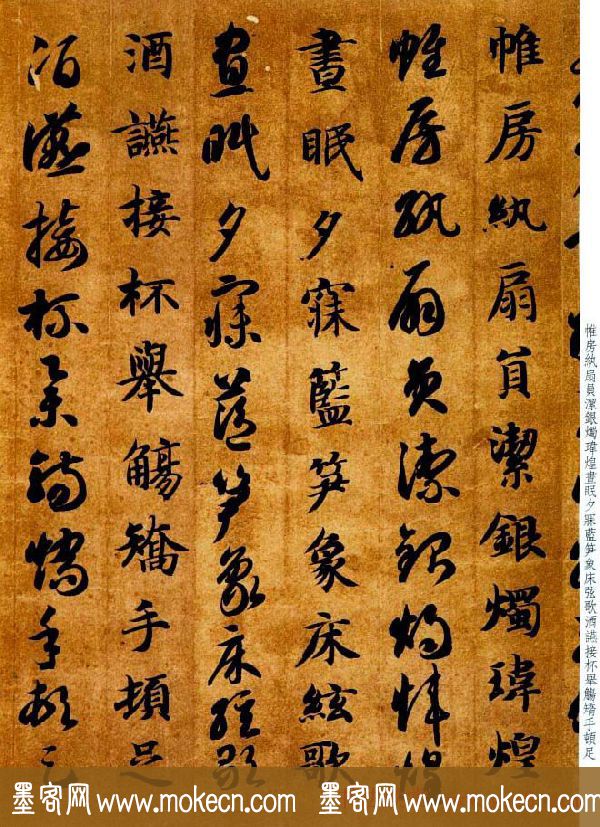 帷房紈扇員潔銀燭瑋煌
帷房紈扇員潔銀燭瑋煌
晝眠夕寐藍笋象床絃歌
晝眠夕寐藍笋象床絃歌
酒讌接杯舉觴矯手頓足
酒讌接杯舉觴矯手頓足
帷房紈扇員潔銀燭瑋煌晝眠夕寐藍笋象床弦歌酒讌接杯舉觴矯手頓足
墨客网 www.mokecn.com 墨客网 www.mokecn.com